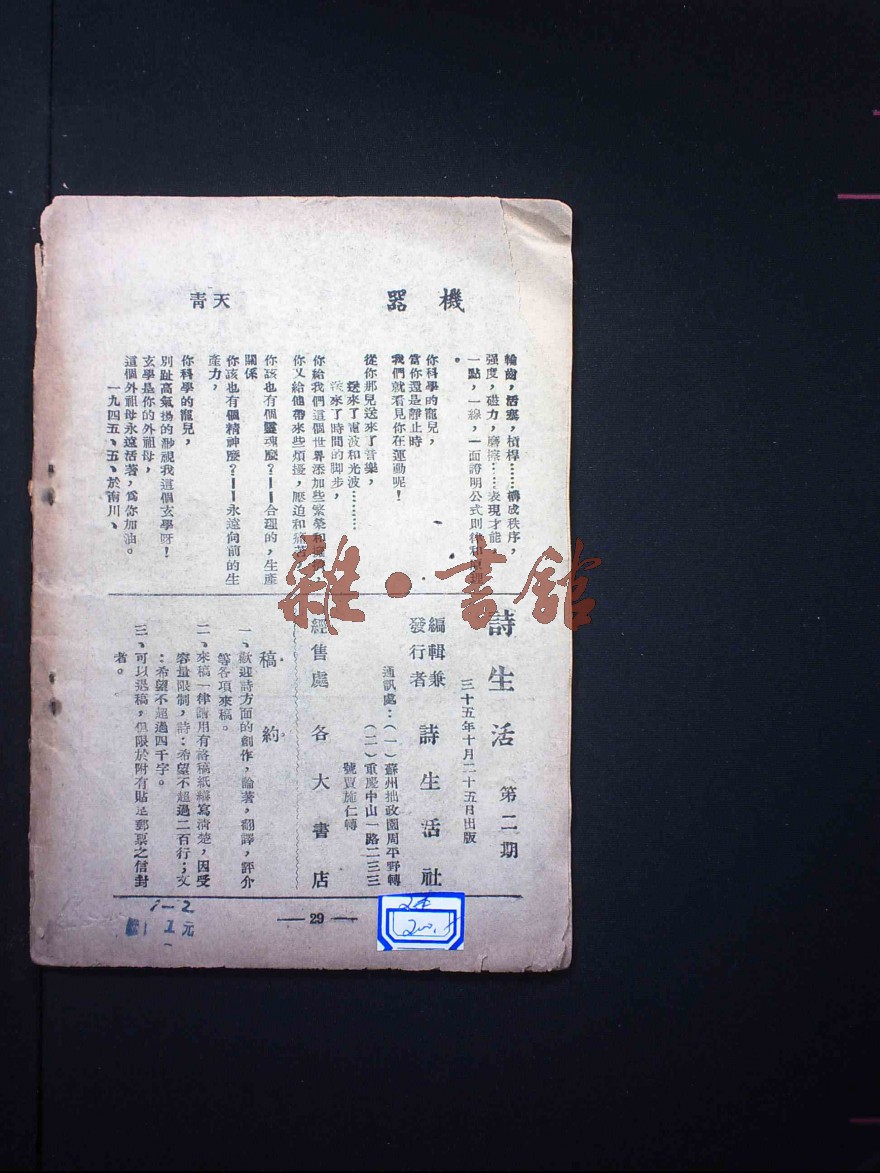 機器
天青
輪齒，活塞，槓桿………構成秩序，
强度，磁力，磨擦……表現才能，
一點，一線，一面證明公式則律和原理
。
你科學的寵兒，
當你還是靜止時
我們就看見你在運動呢！
從你那兒送來了音樂，
送來了電波和光波………
送來了時間的脚步，
你給我們這個世界添加些繁榮和
你又給他帶來些煩擾，壓迫和痛苦
你該也有個靈魂麼？——合理的，生產
關係
你該也有個精神麼？——永遠向前的生
產力，
你科學的寵兒，
別趾高氣揚的渺視我這個玄學呀！
玄學是你的外祖母，
這個外祖母永遠活著，為你加油。
一九四五、五、於南川、
詩生活 第二期
三十五年十月二十五日出版
編輯兼
發行者 詩生活社
通訊處：（一）蘇州拙政園周平野轉
（二）重慶中山一路二三三
號賈施仁轉
經售處 各大書店
稿約
一、歡迎詩方面的創作，論著，翻譯，評介
等各項來稿。
二、來稿一律請用有格稿紙繕寫清楚，因受
容量限制，詩：希望不超過二百行；文
：希望不超過四千字。
三、可以退稿，但限於附有貼足郵票之信封
者。
— 29 —
1-2
1元
雜·書館